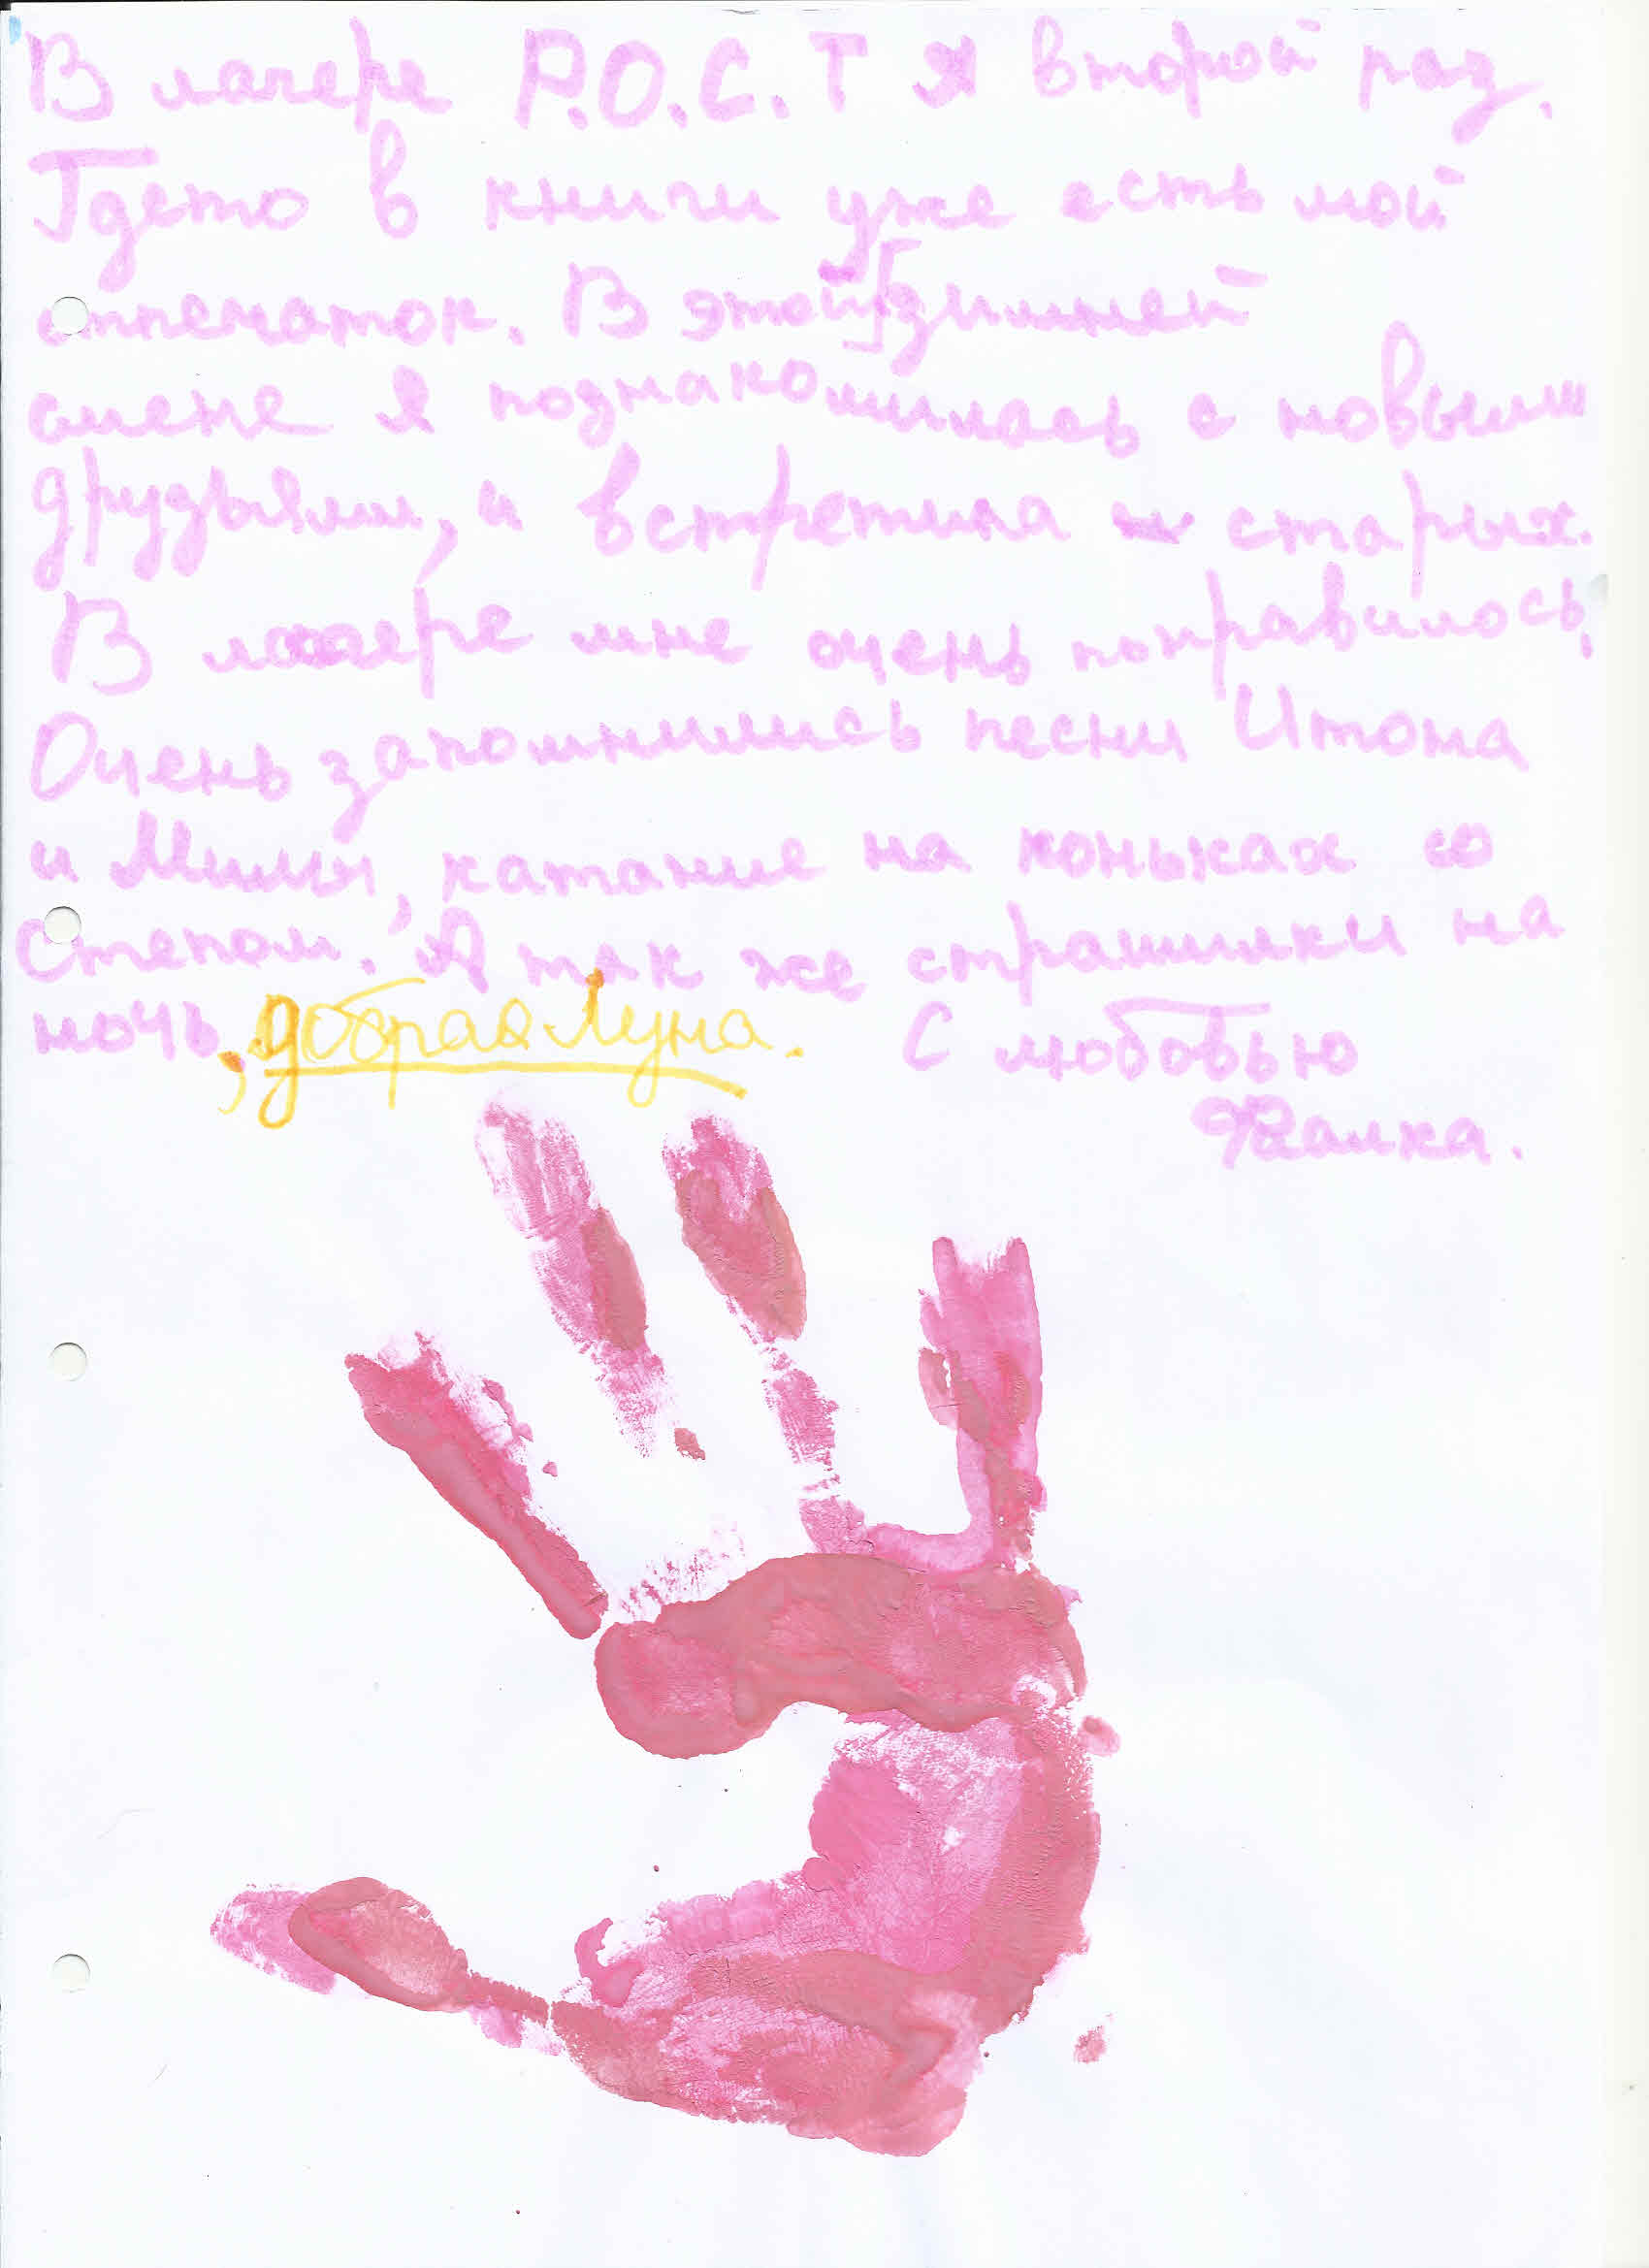 В лагере Р.О.С.Т я второй раз.
Гдето в книги уже есть мой
отпечаток. В этой зимней
смене я познакомилась с новыми
друзьями, и встретила старых.
В лагере мне очень понравилось,
Очень запомнились песни Итона
и Милы, катание на коньках со
Степом. А так же страшилки на
ночь, добрая Луна. С любовью